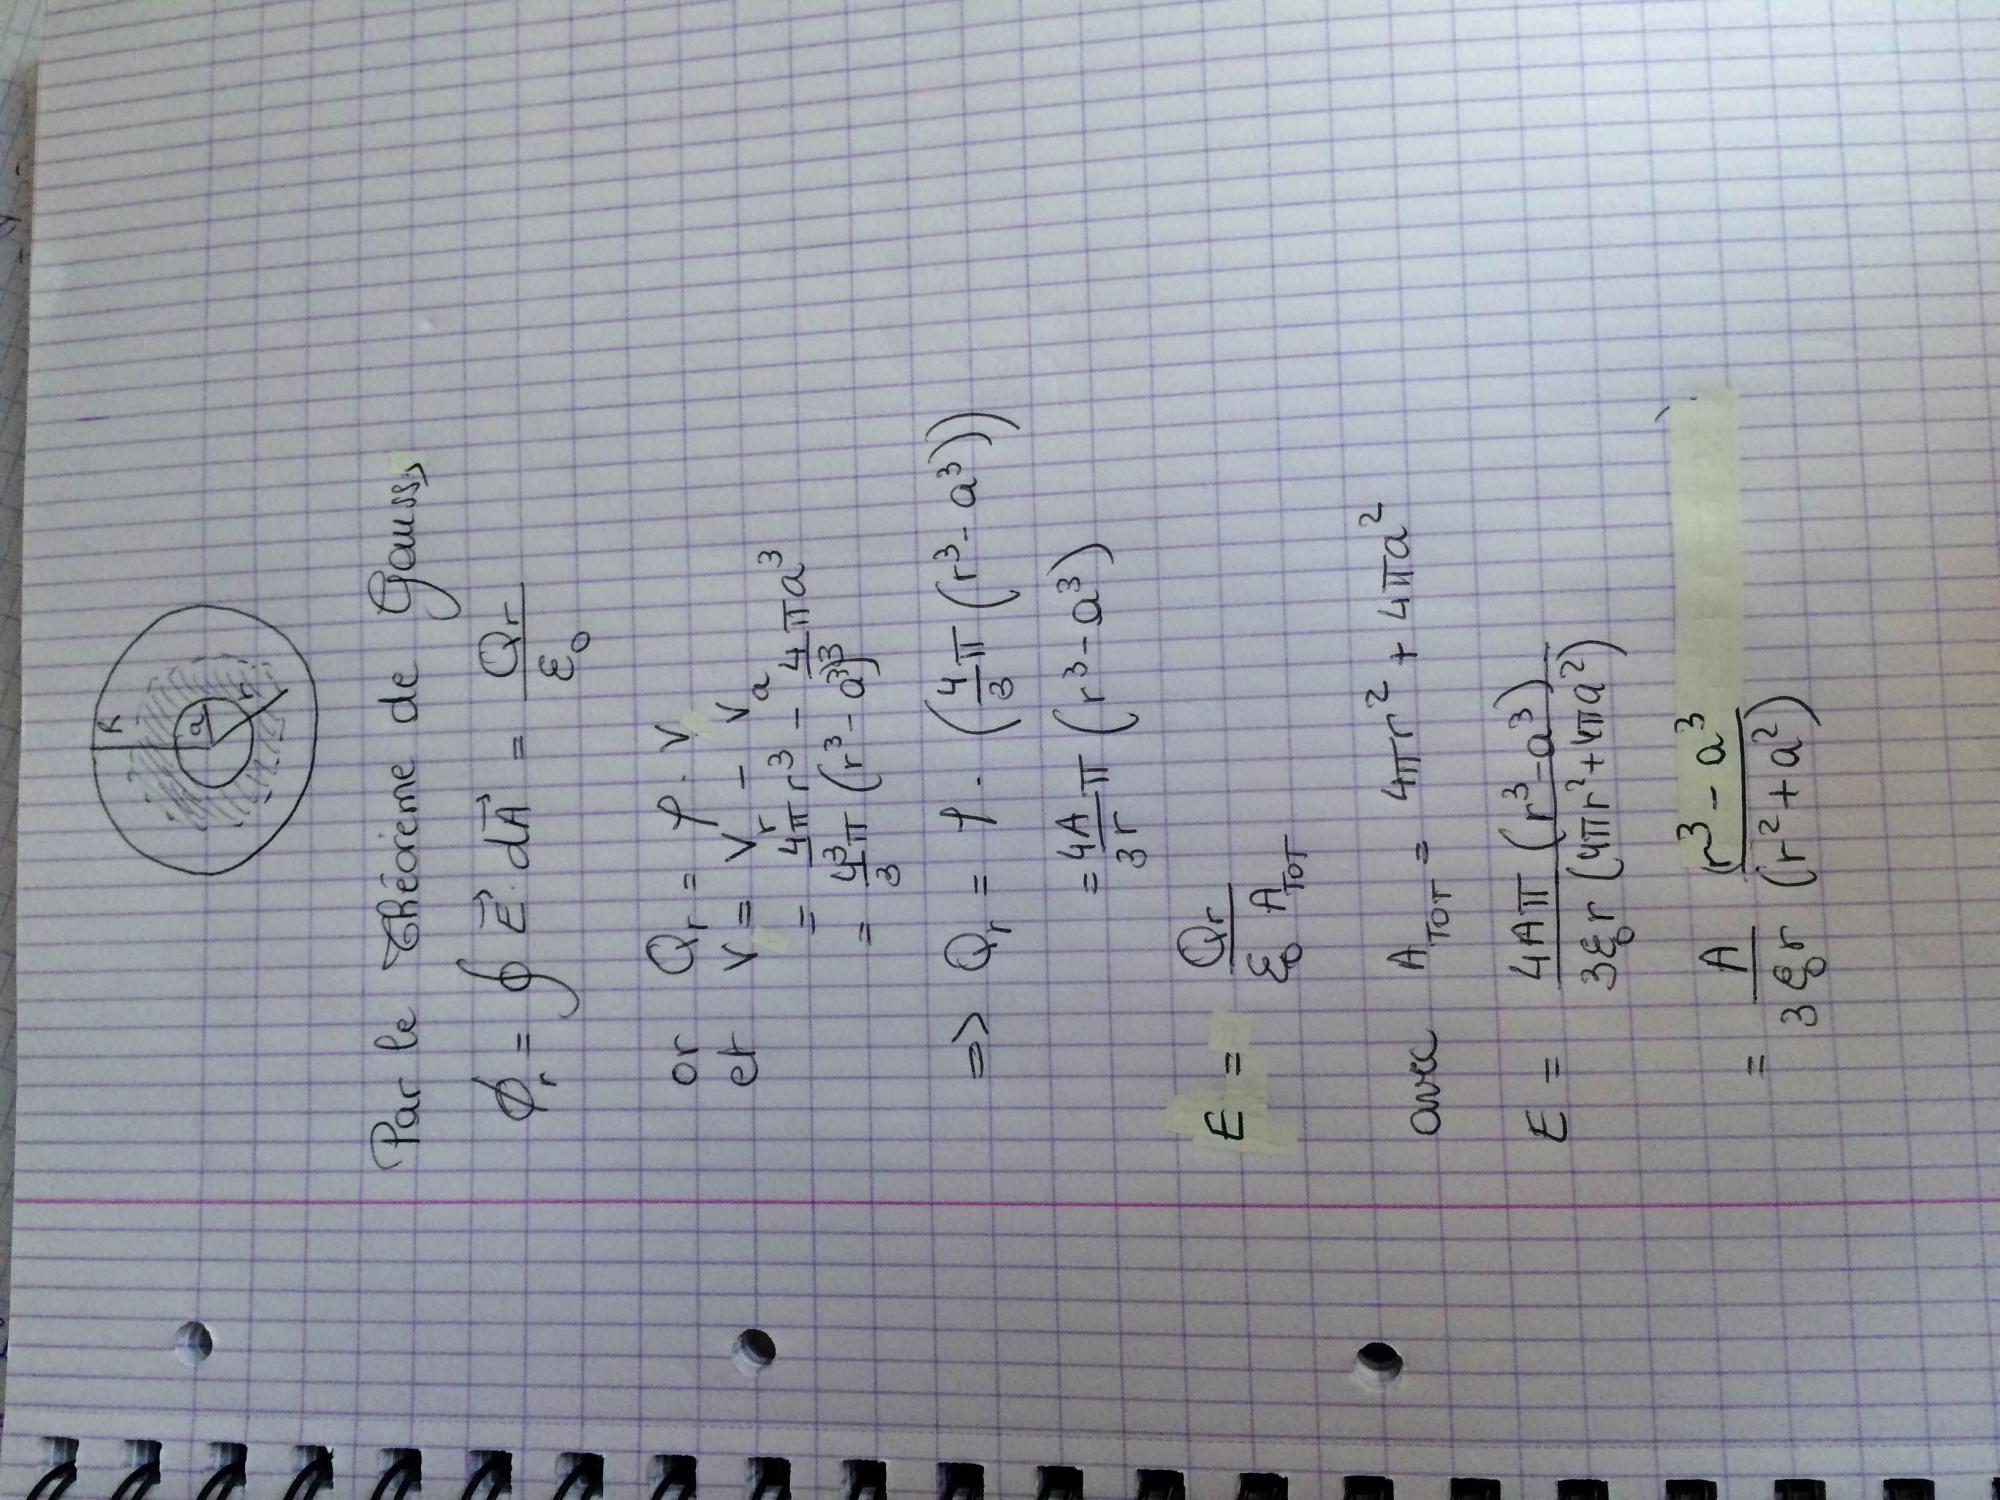 R
a
r
Par le théorème de Gauss,
ϕ_r = ∮ E⃗ . dA⃗ = Qr/ε₀
or Q_r = ρ . V
et V = V_r - V_a
= 4πr³/3 - 4/3 πa³
= 4/3 π (r³ - a³)
=> Q_r = ρ . (4/3 π (r³ - a³))
= 4A/3r π (r³ - a³)
E = Qr/(ε₀ A_TOT)
avec A_TOT = 4πr² + 4πa²
E = 4Aπ (r³ - a³)/(3ε₀r (4πr² + 4πa²))
= A/(3ε₀r) (r³ - a³)/(r² + a²)